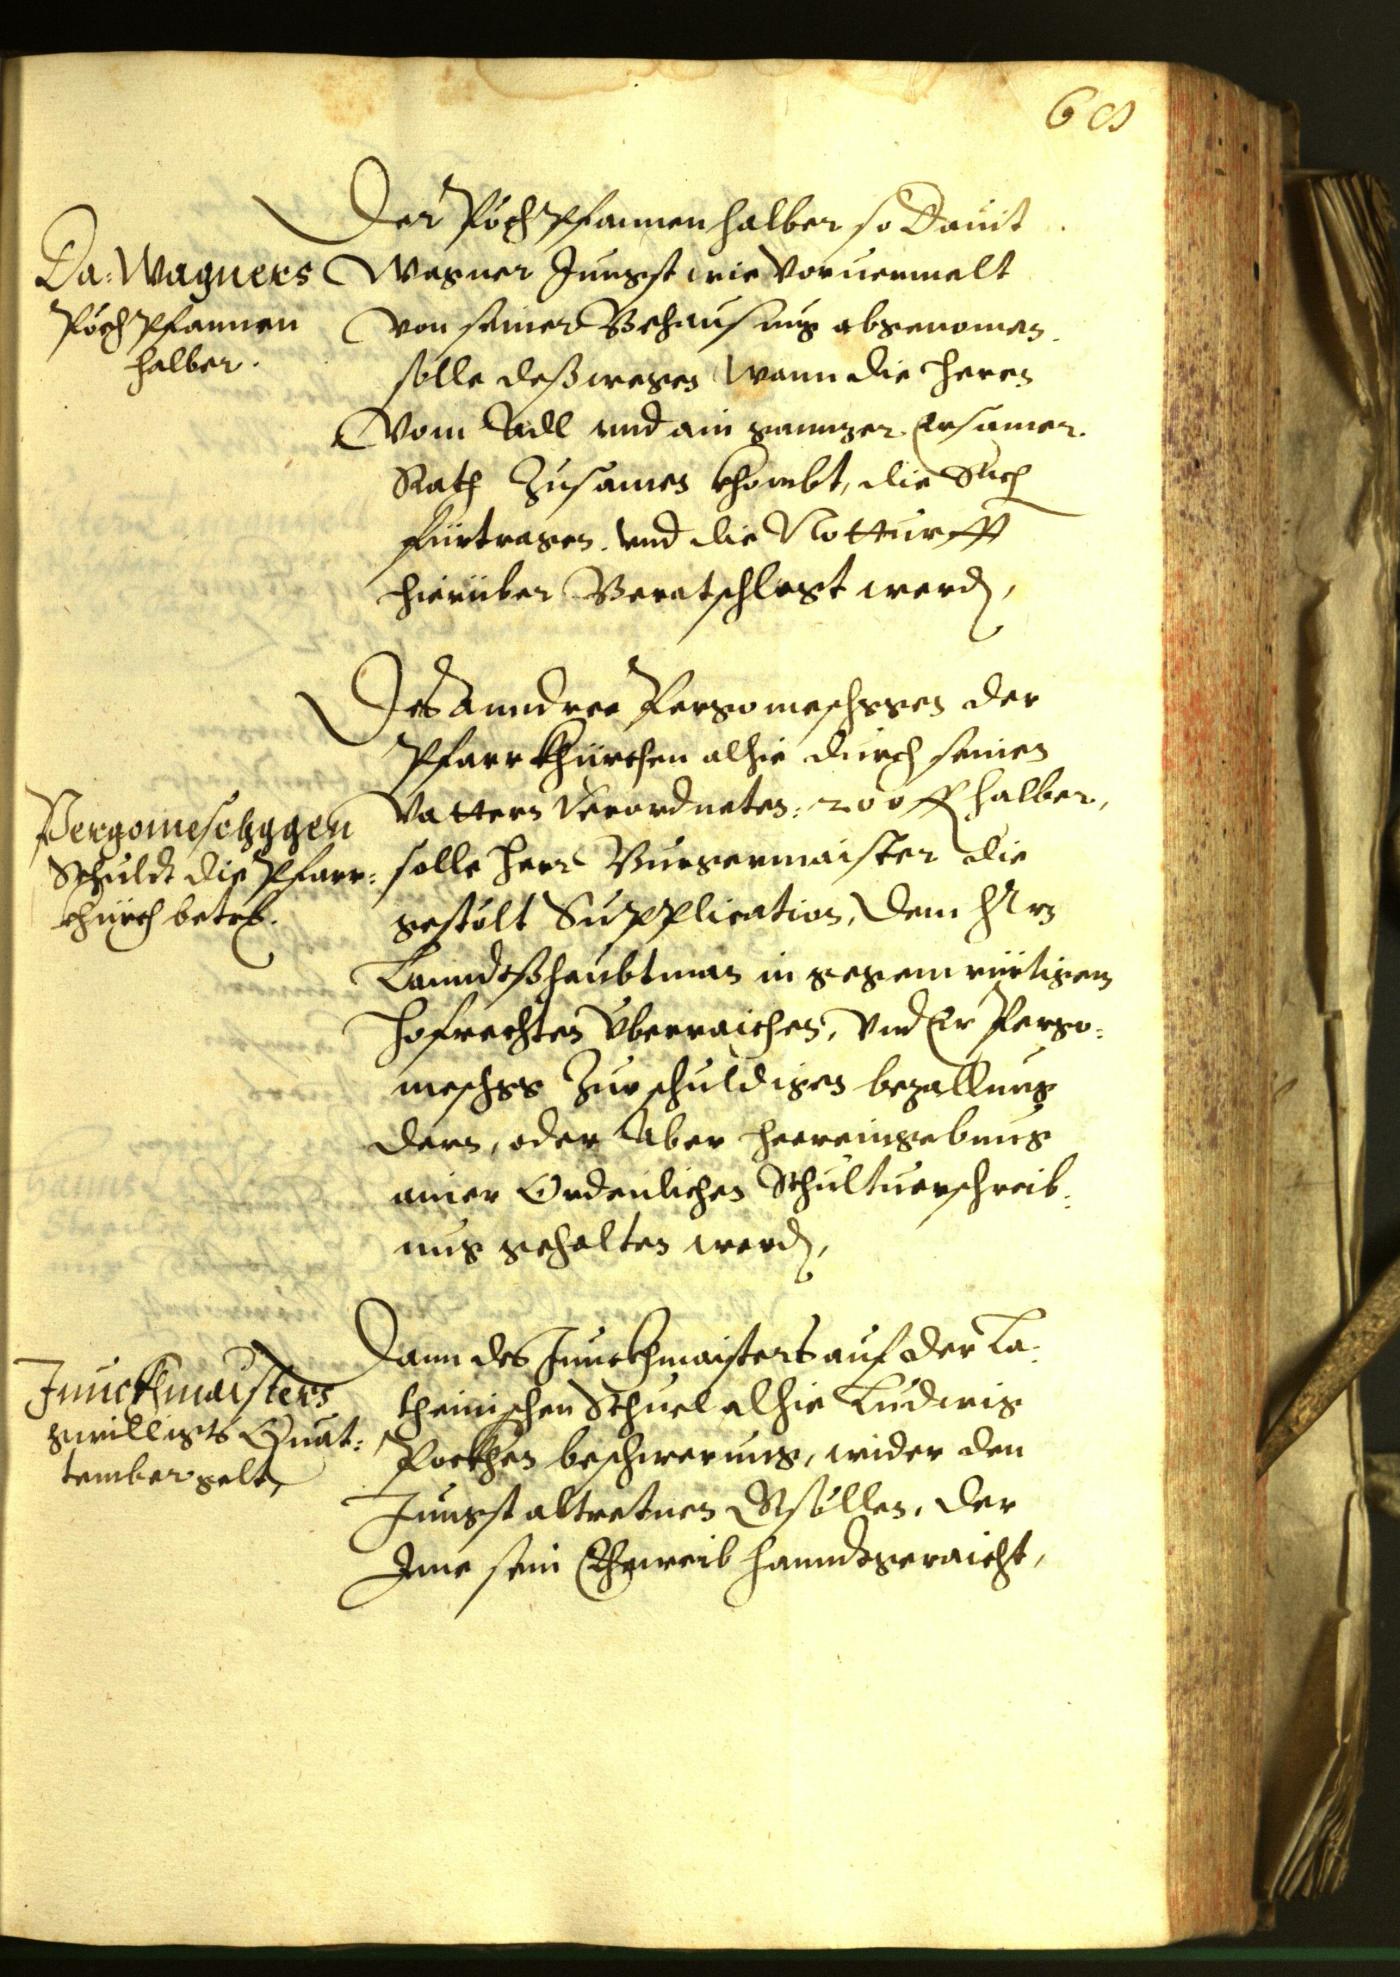 68
Da: Wagners
Pöch Pfannen
halber.
Der Pöch Pfannen halber so Dauit
Wagner Jungst wie Voruermelt
von seiner Behausung abgenomen
solle deßwegen Wann die Herrn
Vom Adl und ain gannzer Ersamer
Rath Zusamen khombt, die Sach
fürtragen. und die Notturfft
hierüber Beratschlagt werdn,
Pergomeschggen
Schuldt die Pfarr=
khürch betrf.
Des Anndree Pergomeschggen der
Pfarrkhürchen alhie durch seinen
Vattern Verordneten. 200 fl halber,
solle Herr Burgermaister die
gestölt Supplication, dem Hrn
Lanndtßhaubtman in gegenwürtigen
Hofrechten Überraichen, Und Er Pergo=
meschgg Zur schuldigen bezallung
dern, oder Aber heereingebung
ainer Ordenlichen Schultuerschreib=
ung gehalten werdn,
Junckhmaisters
gwilligts Quat=
tembergelt,
Dann des Junckhmaisters auf der La=
theinischen Schuel alhie Ludwig
Pockhen beschwerung, wider den
Jungst abtretnen Gsöllen, der
Ime sein Eheweib hanndtgeraicht,